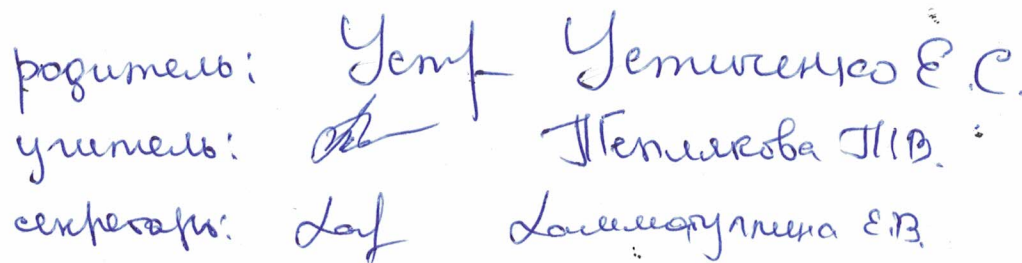 родитель: Уст Устиченко Е.С.
учитель: Теплякова Т.В.
секретарь: Хамматуллина Е.В.